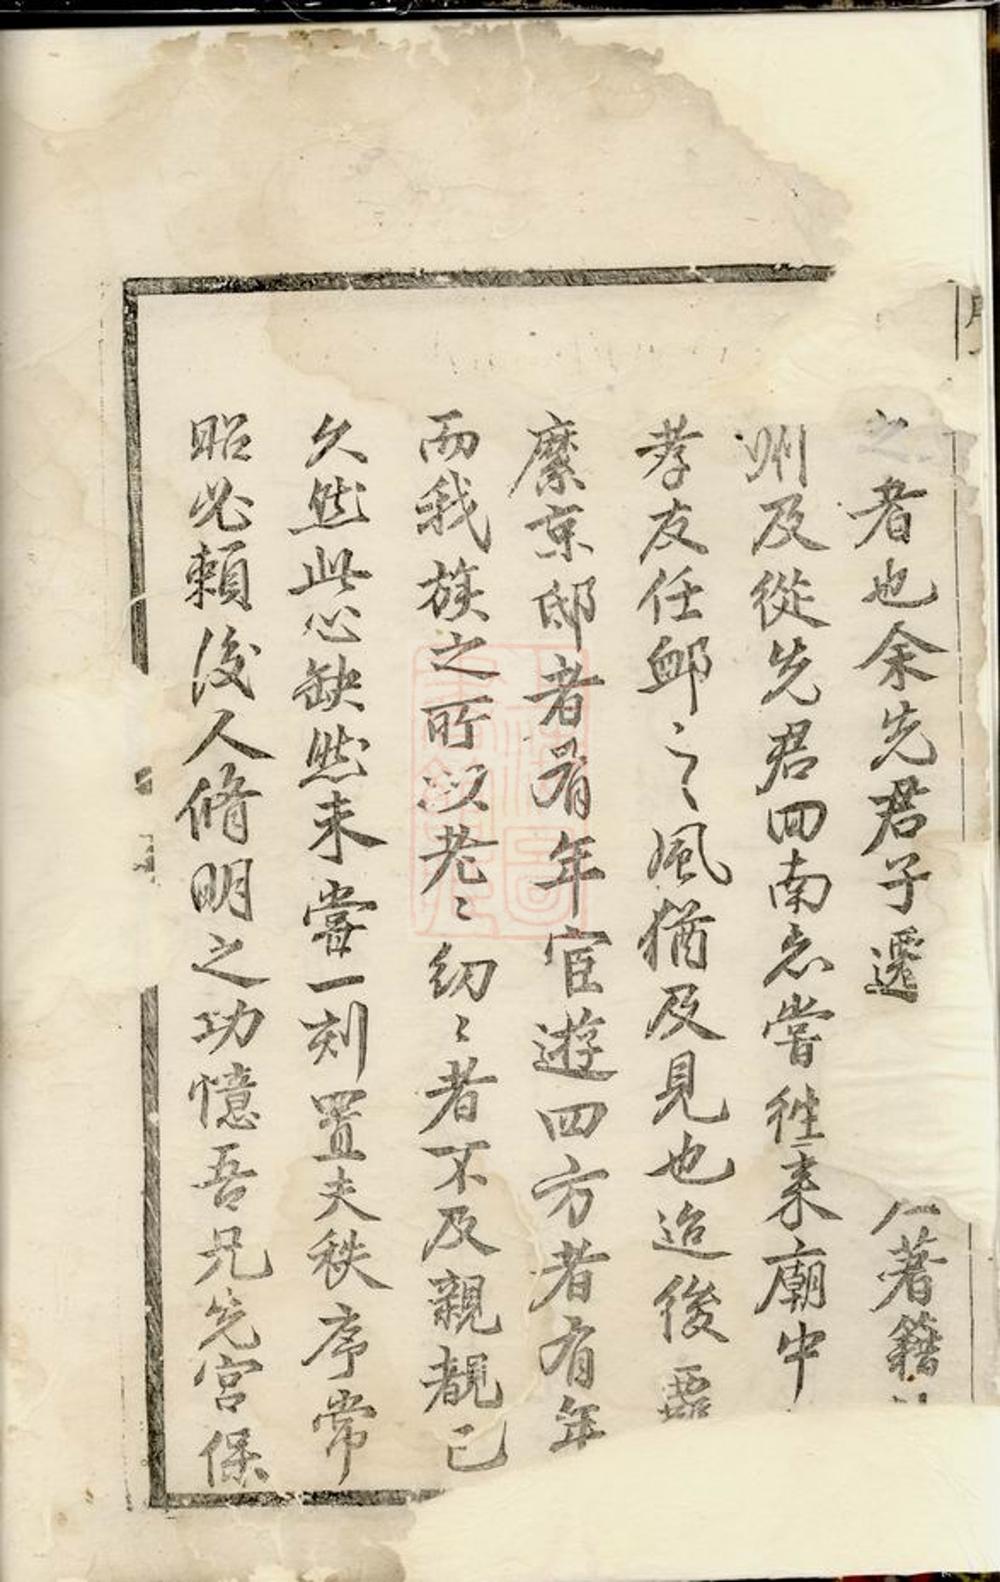 之者也余先君子遷著籍
州及從先君回南志嘗往来廟中
孝友任卹之之風猶及見也迨後
縻京邸者有年宦遊四方者有年
而我族之所以老〻幼〻者不及親覩已
久然此心缺然未嘗一刻置夫秩序常
昭必賴後人脩明之功憶吾兄先宮保